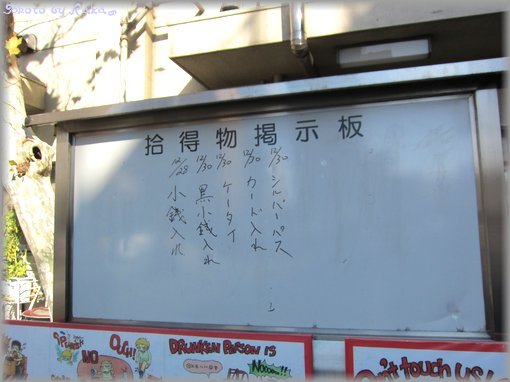 Photo by Rika
拾得物掲示板
12/30 シルバーパス
12/30 カード入れ
12/30 ケータイ
12/30 黒小銭入れ
12/28 小銭入れ
NO
OUCH!
DRUNKEN PERSON IS
Don't touch us!